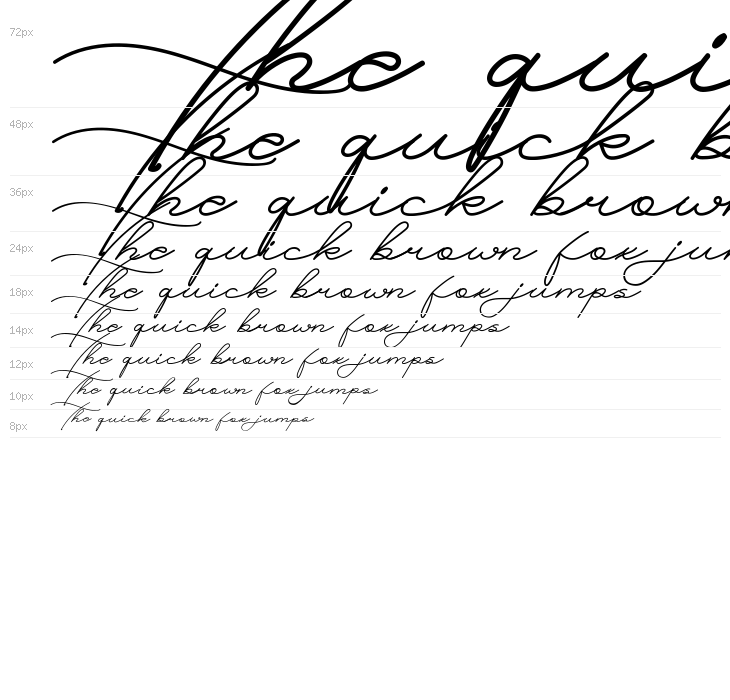 72px The qui
48px The quick b
36px The quick brown
24px The quick brown fox jum
18px The quick brown fox jumps
14px The quick brown fox jumps
12px The quick brown fox jumps
10px The quick brown fox jumps
8px The quick brown fox jumps